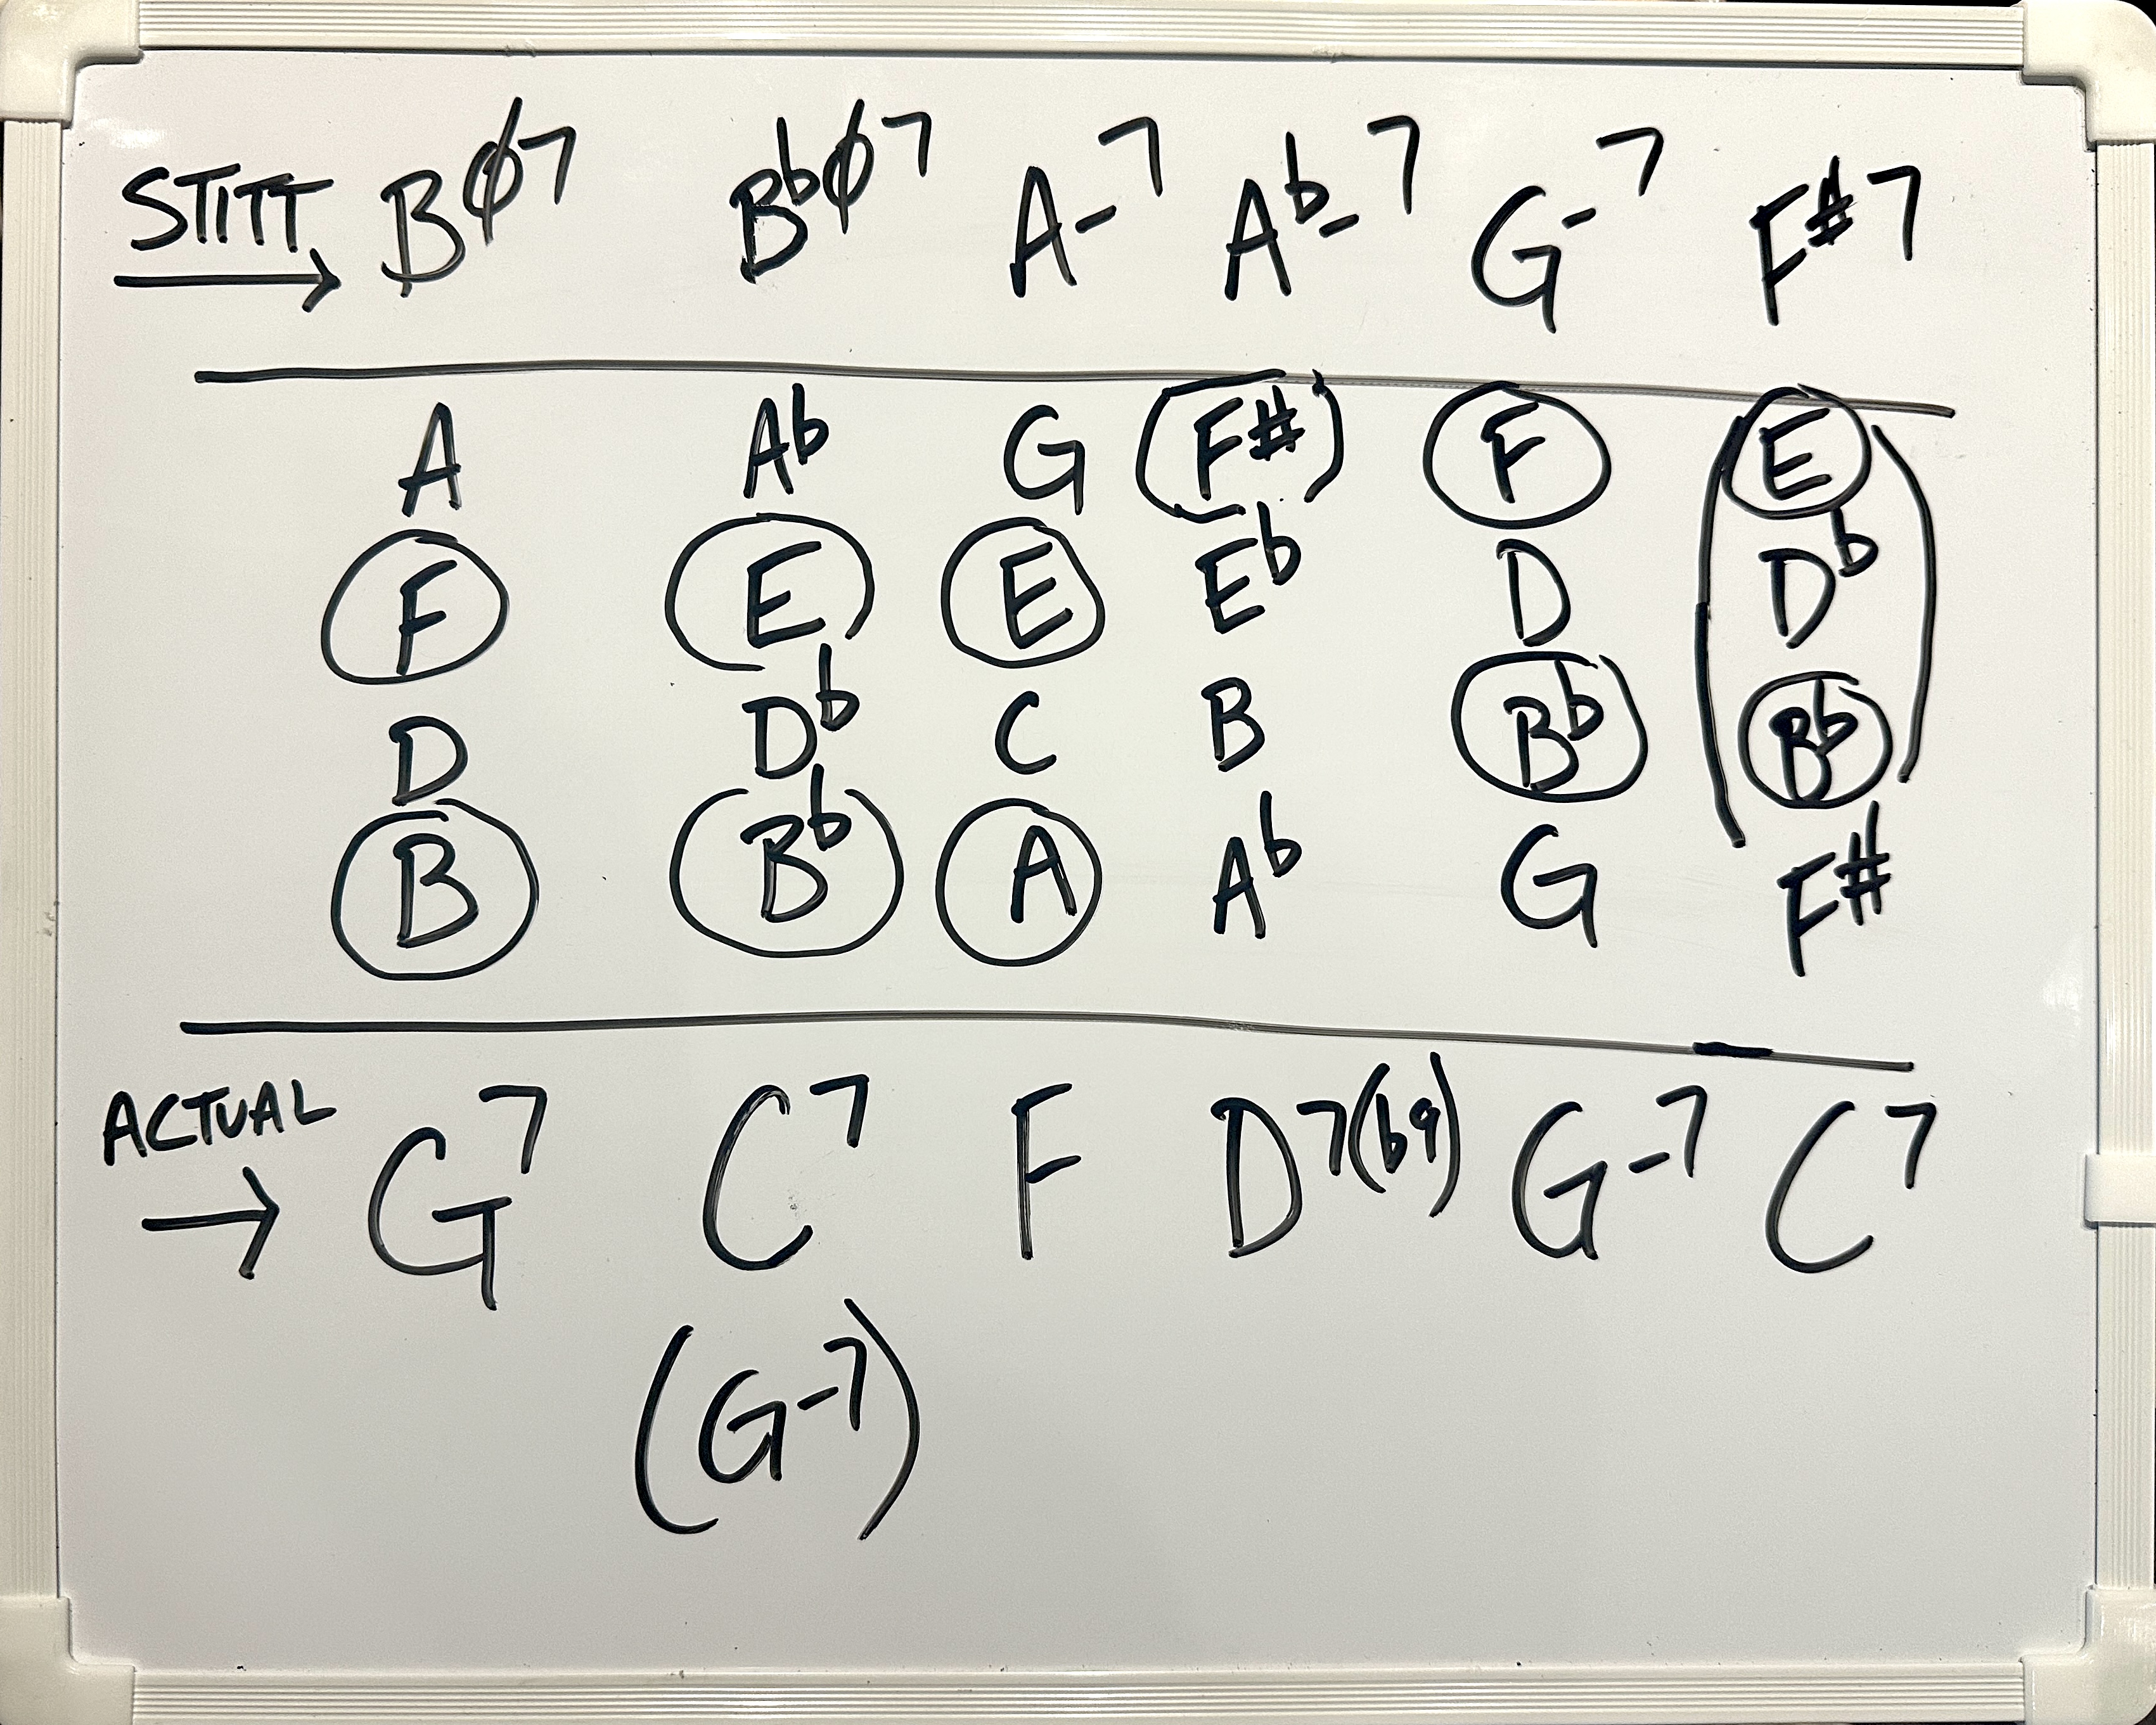 STITT → Bø7 Bbø7 A-7 Ab-7 G-7 F#7
A Ab G (F#) F E
F E E Eb D Db
D Db C B Bb Bb
B Bb A Ab G F#
ACTUAL → G7 C7 F D7(b9) G-7 C7
(G-7)